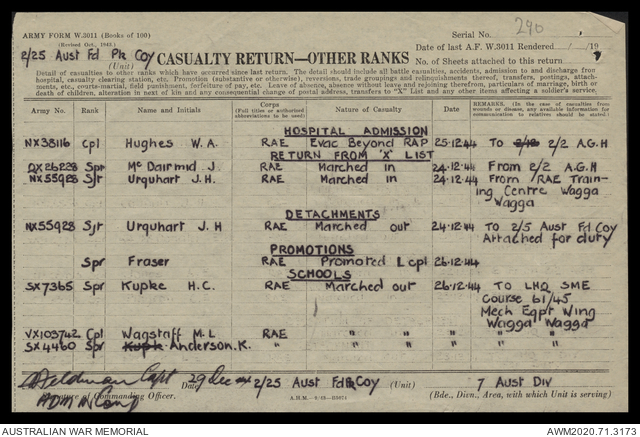 290
ARMY FORM W.3011 (Books of 100)
(Revised Oct., 1943.)
Serial No.
2/25 Aust Fd Pk Coy
(Unit)
CASUALTY RETURN—OTHER RANKS
Date of last A.F. W.3011 Rendered / /19
No. of Sheets attached to this return
Detail of casualties to other ranks which have occurred since last return. The detail should include all battle casualties, accidents, admission to and discharge from
hospital, casualty clearing station, etc. Promotion (substantive or otherwise), reversions, trade groupings and relinquishments thereof, transfers, postings, attach-
ments, etc., courts-martial, field punishment, forfeiture of pay, etc. Leave of absence, absence without leave and rejoining therefrom, particulars of marriage, birth or
death of children, alteration in next of kin and any consequential change of postal address, transfers to "X" List and any other items affecting a soldier's service.
Army No. Rank Name and Initials Corps (Full titles or authorised abbreviations to be used) Nature of Casualty Date REMARKS. (In the case of casualties from wounds or disease, any available information for communication to relatives should be stated.)
HOSPITAL ADMISSION
NX38116 Cpl Hughes W.A. RAE Evac Beyond RAP 25-12-44 To 2/12 2/2 A.G.H
RETURN FROM 'X' LIST
QX26228 Spr McDairmid J. RAE Marched in 24-12-44 From 2/2 A.G.H
NX55928 Sjt Urquhart J.H. RAE Marched in 24-12-44 From RAE Train-
ing Centre Wagga
Wagga
DETACHMENTS
NX55928 Sjt Urquhart J.H RAE Marched out 24-12-44 To 2/5 Aust Fd Coy
Attached for duty
PROMOTIONS
Spr Fraser RAE Promoted L cpl 26-12-44
SCHOOLS
SX7365 Spr Kupke H.C. RAE Marched out 26-12-44 TO LHQ SME
Course 61/45
Mech Eqpt Wing
Wagga Wagga
VX103742 Cpl Wagstaff M.L RAE " " " "
SX4460 Spr Kupk Anderson.K. " " " " "
Capt Date 29 Dec 44 2/25 Aust Fd Pk Coy (Unit) 7 Aust Div
Signature of Commanding Officer.
(Bde., Divn., Area, with which Unit is serving)
AUSTRALIAN WAR MEMORIAL
AWM2020.71.3173